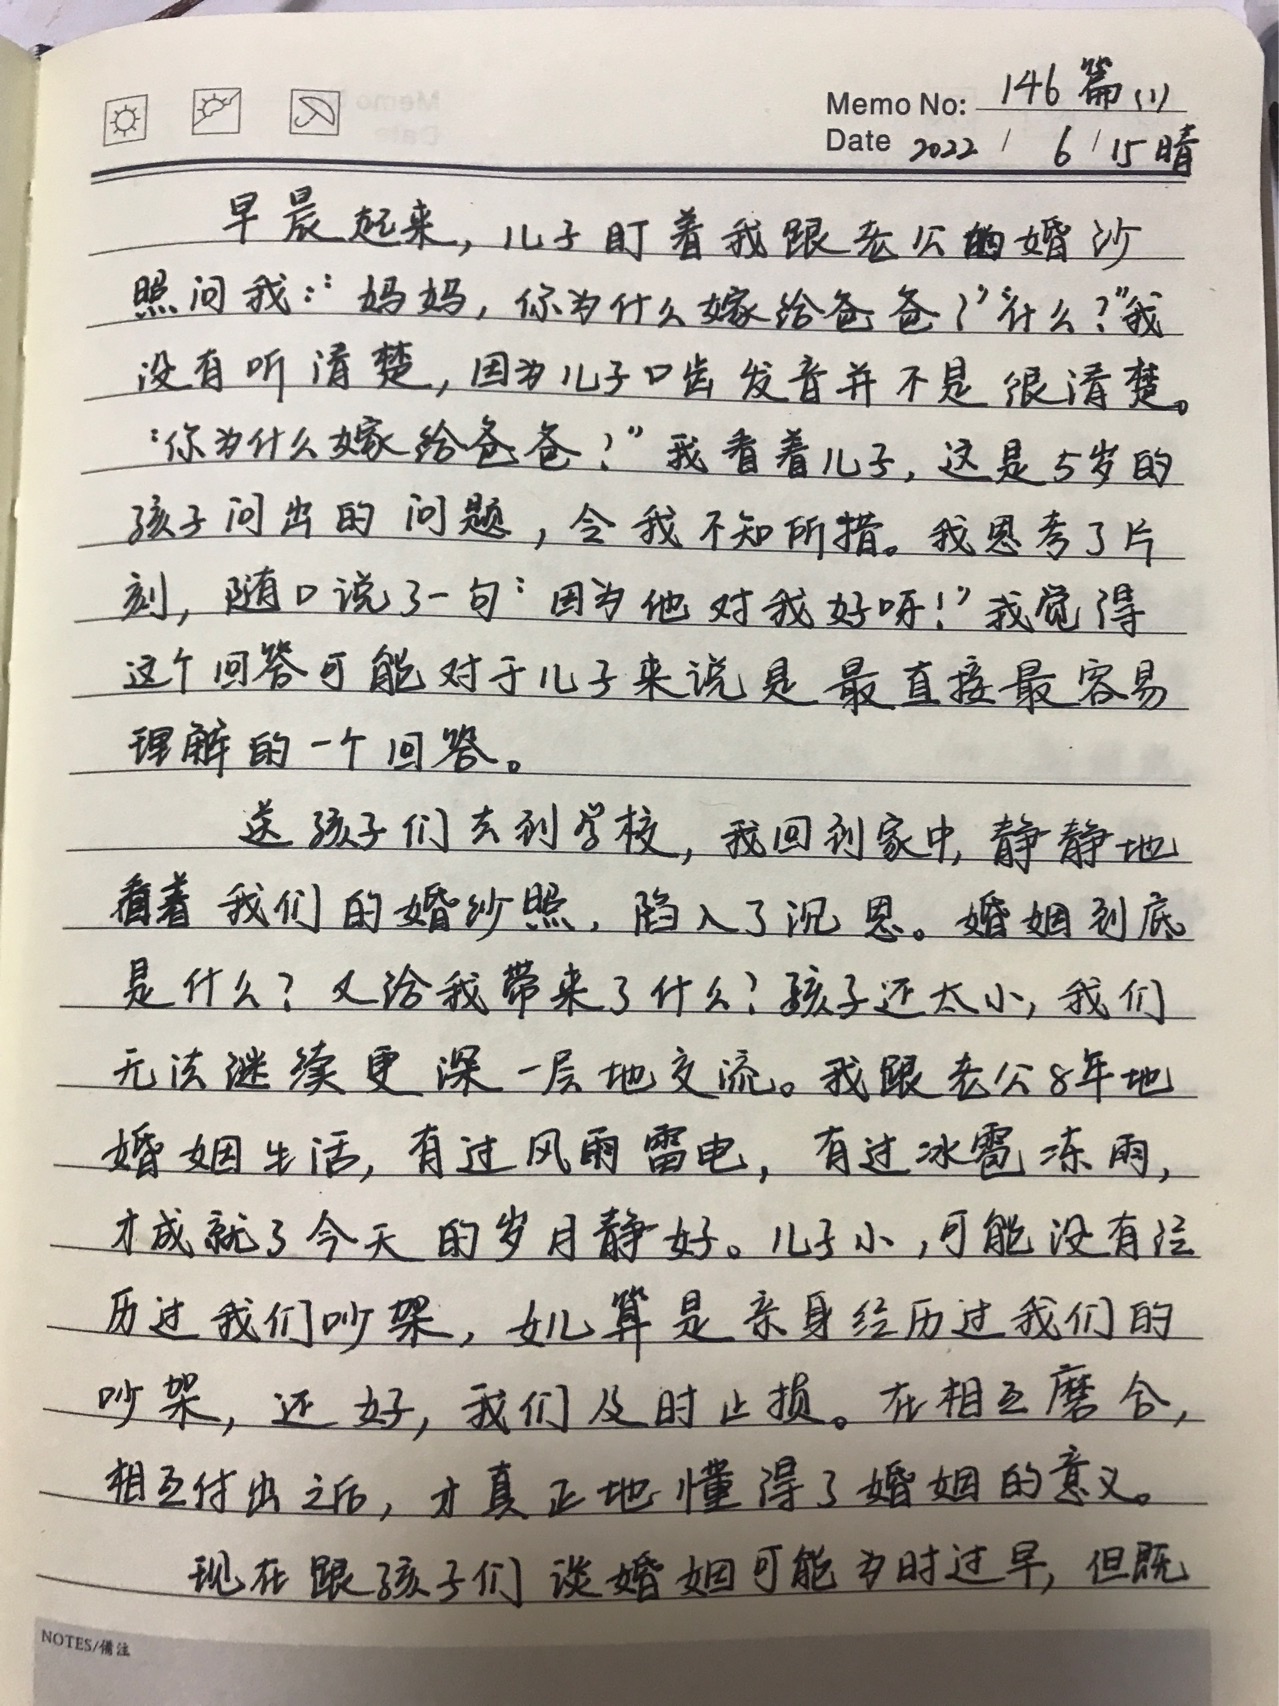 Memo No: 146篇(1)
Date 2022 / 6 / 15 晴
早晨起来，儿子盯着我跟老公的婚沙
照问我：“妈妈，你为什么嫁给爸爸？”“什么？”我
没有听清楚，因为儿子口齿发音并不是很清楚。
“你为什么嫁给爸爸？”我看着儿子，这是5岁的
孩子问出的问题，令我不知所措。我思考了片
刻，随口说了一句：因为他对我好呀！”我觉得
这个回答可能对于儿子来说是最直接最容易
理解的一个回答。
送孩子们去到学校，我回到家中，静静地
看着我们的婚纱照，陷入了沉思。婚姻到底
是什么？又给我带来了什么？孩子还太小，我们
无法继续更深一层地交流。我跟老公8年地
婚姻生活，有过风雨雷电，有过冰雹冻雨，
才成就了今天的岁月静好。儿子小，可能没有经
历过我们吵架，女儿算是亲身经历过我们的
吵架，还好，我们及时止损。在相互磨合，
相互付出之后，才真正地懂得了婚姻的意义。
现在跟孩子们谈婚姻可能为时过早，但既
NOTES/備注